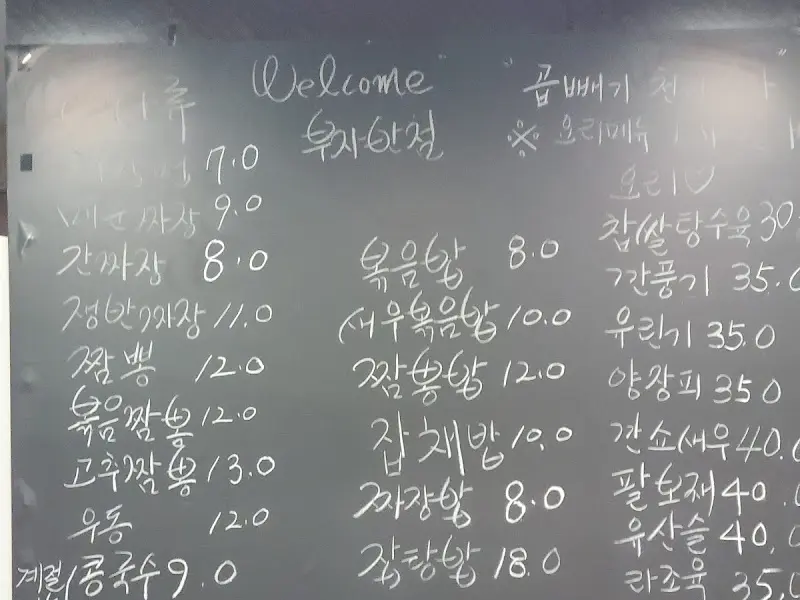 "Welcome"
부자반점
7.0
짜장 9.0
간짜장 8.0
쟁반짜장 11.0
짬뽕 12.0
볶음짬뽕 12.0
고추짬뽕 13.0
우동 12.0
계절/콩국수 9.0
볶음밥 8.0
새우볶음밥 10.0
짬뽕밥 12.0
잡채밥 10.0
짜장밥 8.0
잡탕밥 18.0
"곱빼기 천
※ 요리메뉴
요리♡
찹쌀탕수육 30.
깐풍기 35.0
유린기 35.0
양장피 35.0
깐쇼새우 40.0
팔보채 40.0
유산슬 40.0
라조육 35.0